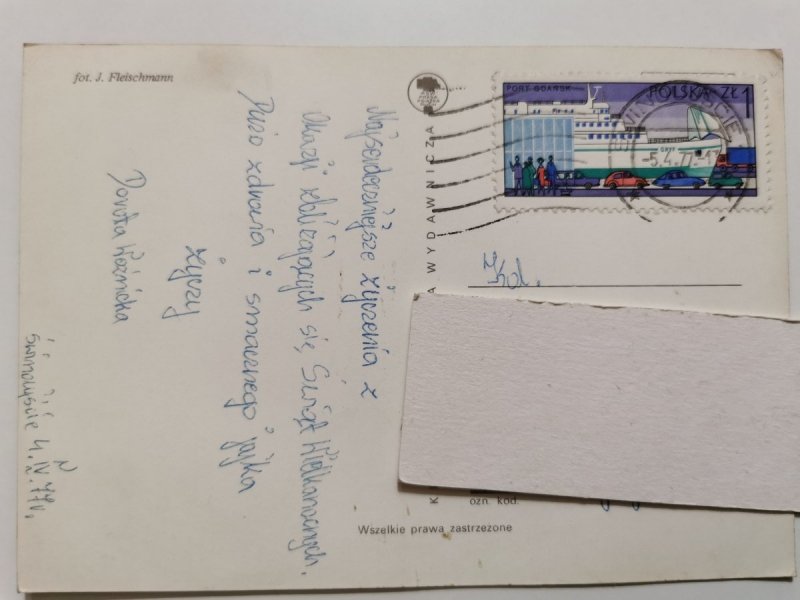 fot. J. Fleischmann
PORT GDAŃSK
POLSKA ZŁ 1
ŚWINOUJŚCIE
-5.4.77.-17
GRYF
Najserdeczniejsze życzenia z
okazji zbliżających się Świąt Wielkanocnych.
Dużo zdrowia i smacznego jajka
życzy
Dorota Woźnicka
Świnoujście 4.IV.77r.
A WYDAWNICZA
K
ozn. kod.
Wszelkie prawa zastrzeżone